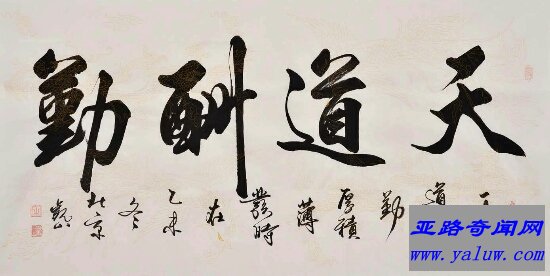 天道酬勤
道勤厚積薄發時在乙未冬北京
亚路奇闻网
www.yaluw.com